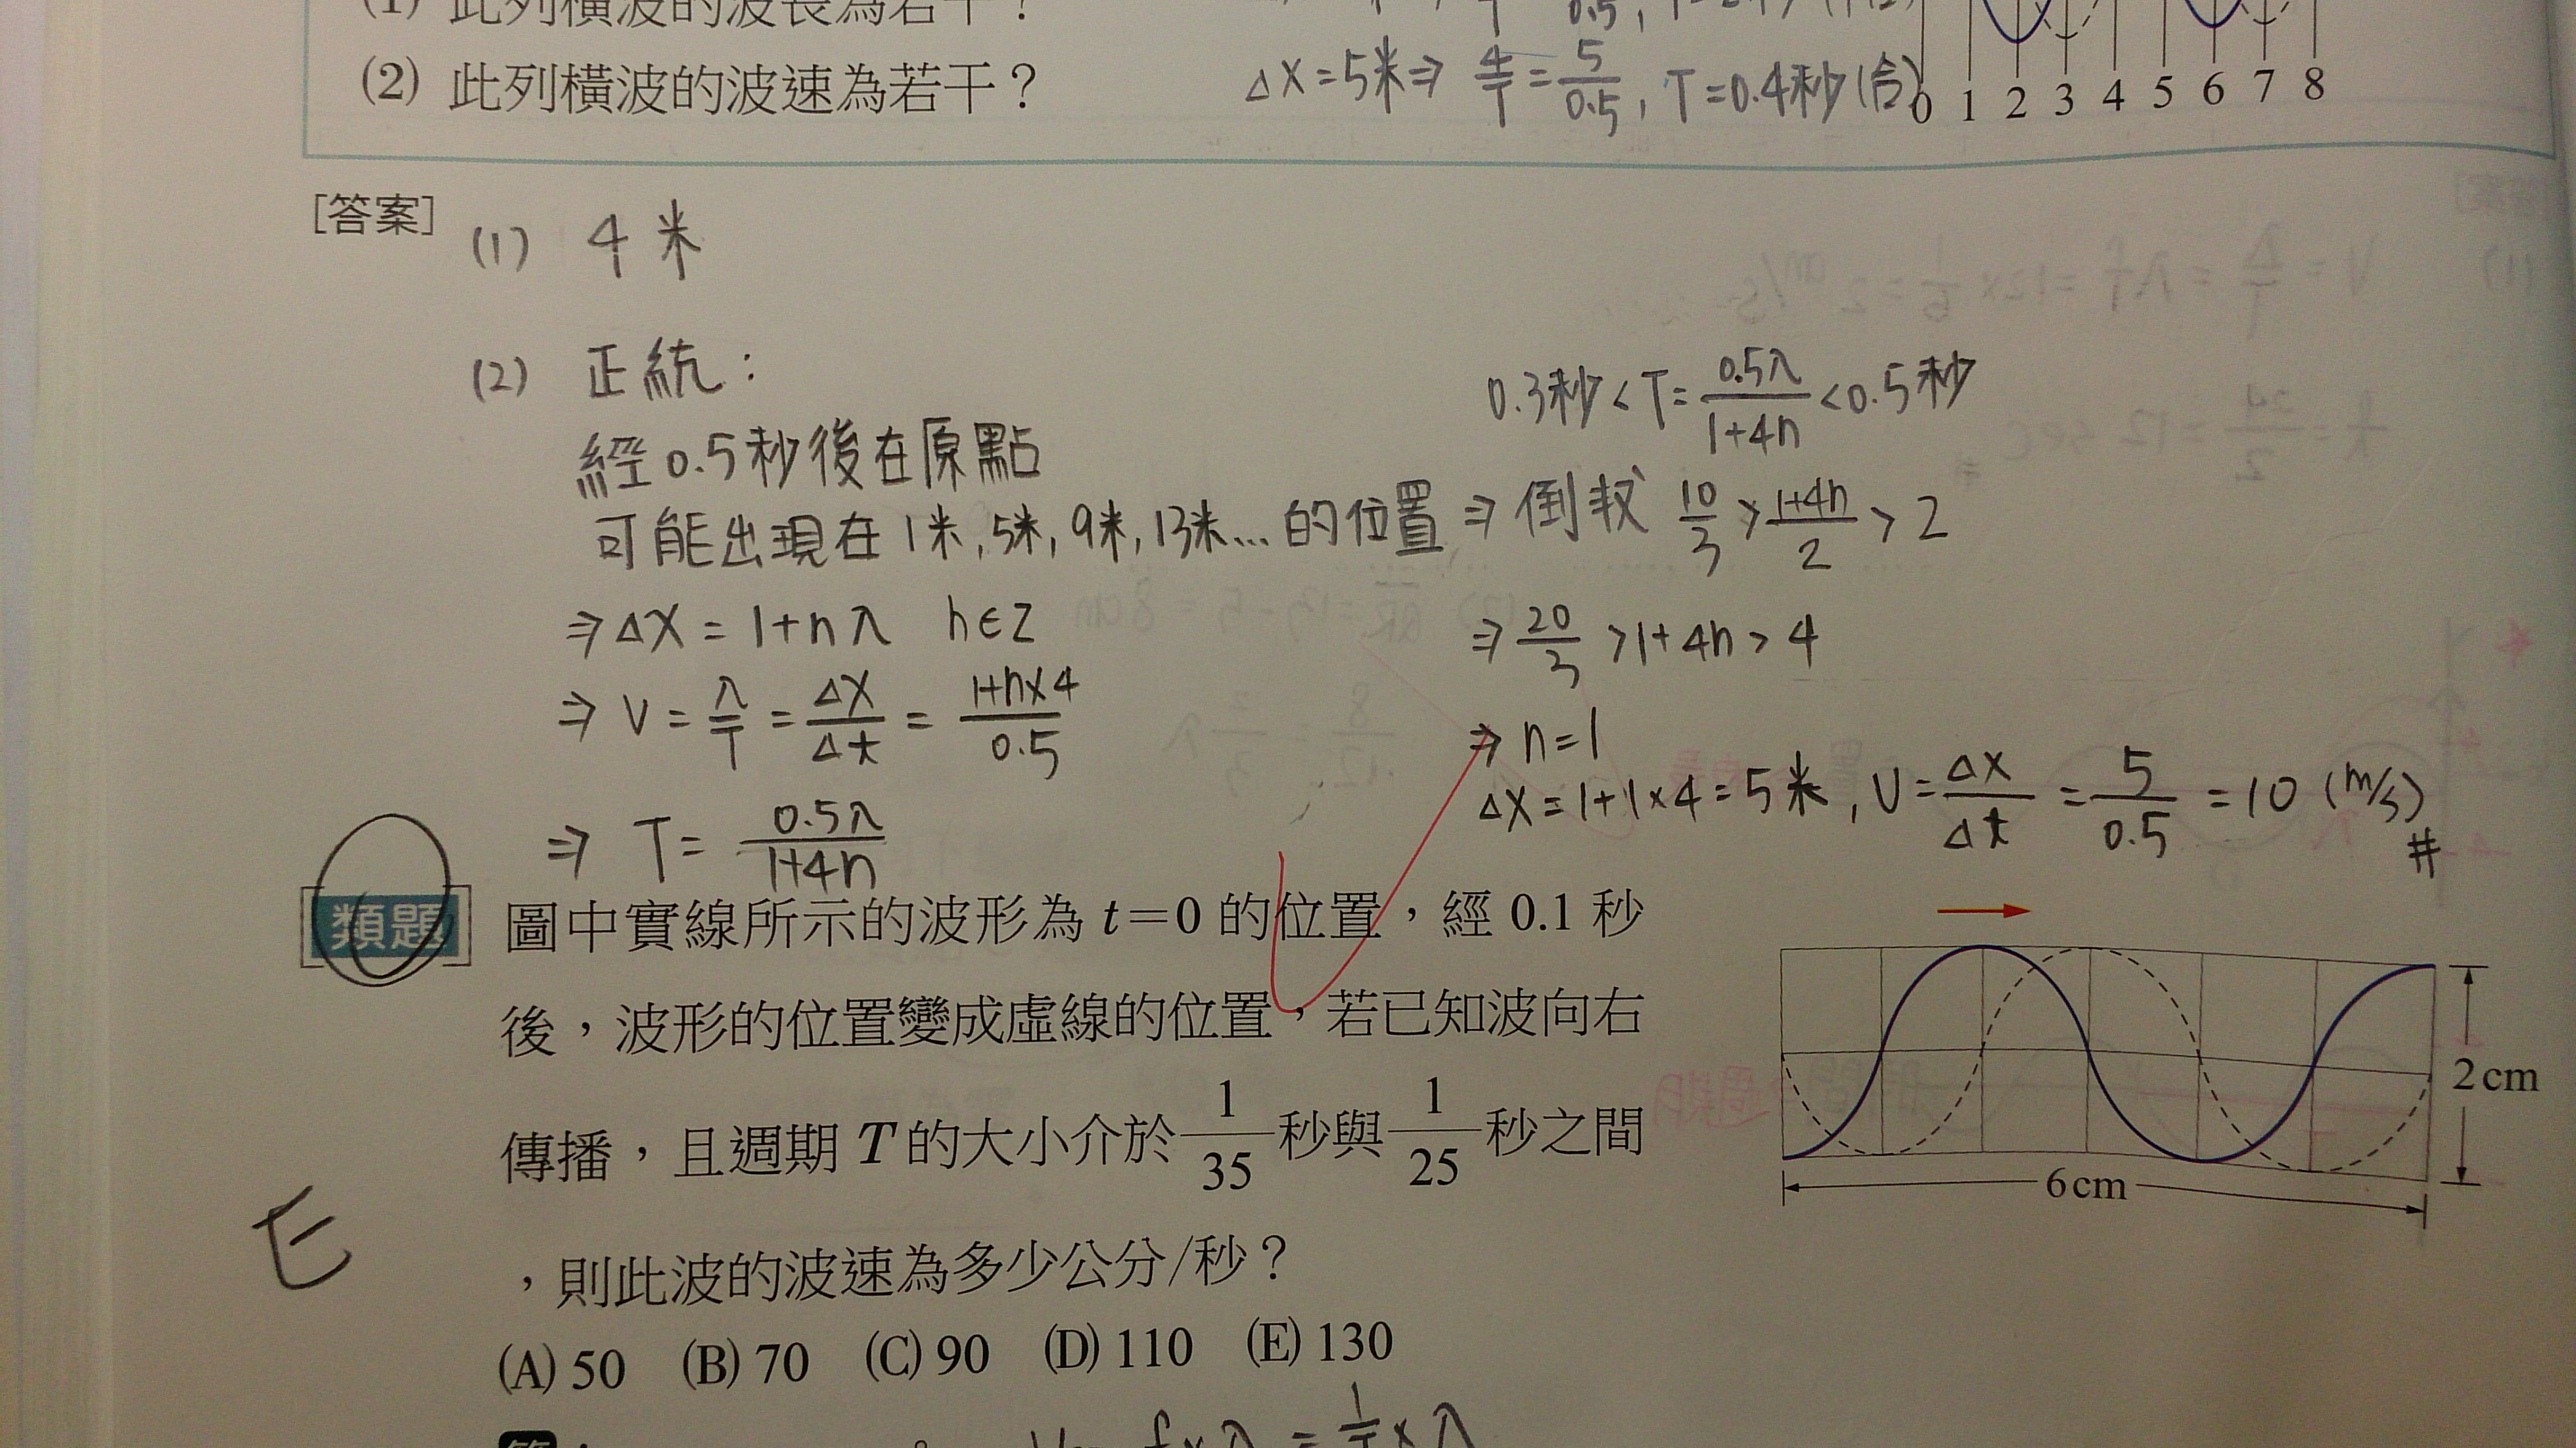 (1) 此列橫波的波長為若干?
(2) 此列橫波的波速為若干?
ΔX=5米⇒ 4/T = 5/0.5, T=0.4秒(合)
0 1 2 3 4 5 6 7 8
[答案]
(1) 4米
(2) 正統:
經0.5秒後在原點
可能出現在1米,5米,9米,13米...的位置
⇒ΔX=1+nλ n∈Z
⇒ V = λ/T = ΔX/Δt = 1+n×4/0.5
⇒ T = 0.5λ/1+4n
0.3秒<T=0.5λ/1+4n<0.5秒
⇒ 倒 10/3 > 1+4n/2 > 2
⇒ 20/3 >1+4n>4
⇒ n=1
ΔX=1+1×4=5米, V=ΔX/Δt = 5/0.5 =10 (m/s)
#
類題
圖中實線所示的波形為 t=0 的位置,經 0.1 秒
後,波形的位置變成虛線的位置,若已知波向右
傳播,且週期 T 的大小介於 1/35 秒與 1/25 秒之間
,則此波的波速為多少公分/秒?
(A) 50 (B) 70 (C) 90 (D) 110 (E) 130
2 cm
6 cm
E